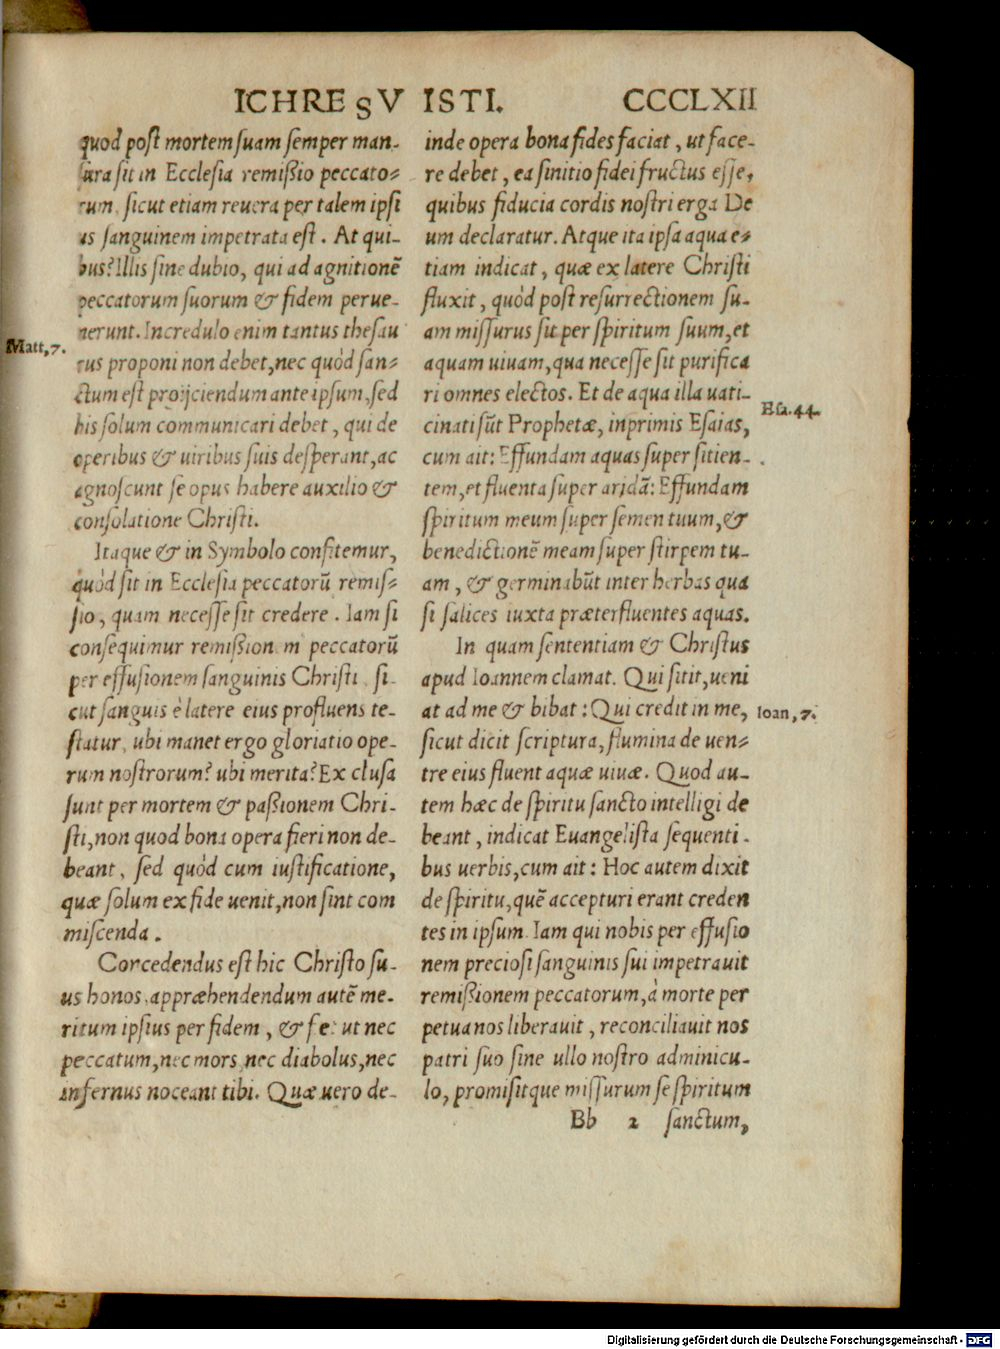 ICHRE SV ISTI. CCCLXII
quod post mortem suam semper man-
sura sit in Ecclesia remißio peccato-
rum, sicut etiam reuera per talem ipsi
us sanguinem impetrata est. At qui-
bus? Illis sine dubio, qui ad agnitionē
peccatorum suorum & fidem perue-
nerunt. Incredulo enim tantus thesau
rus proponi non debet, nec quòd san-
ctum est proijciendum ante ipsum, sed
his solum communicari debet, qui de
operibus & uiribus suis desperant, ac
agnoscunt se opus habere auxilio &
consolatione Christi.
Matt, 7.
Itaque & in Symbolo confitemur,
quòd sit in Ecclesia peccatorū remis-
sio, quam necesse sit credere. Iam si
consequimur remißion m peccatorū
per effusionem sanguinis Christi, si-
cut sanguis è latere eius profluens te-
statur, ubi manet ergo gloriatio ope-
rum nostrorum? ubi merita? Ex clusa
sunt per mortem & paßionem Chri-
sti, non quod bona opera fieri non de-
beant, sed quòd cum iustificatione,
quæ solum ex fide uenit, non sint com
miscenda.
Corcedendus est hic Christo su-
us honos, appræhendendum autē me-
ritum ipsius per fidem, & fe: ut nec
peccatum, nec mors, nec diabolus, nec
infernus noceant tibi. Quæ uero de-
inde opera bona fides faciat, ut face-
re debet, ea sinitio fidei fructus esse,
quibus fiducia cordis nostri erga De
um declaratur. Atque ita ipsa aqua e-
tiam indicat, quæ ex latere Christi
fluxit, quòd post resurrectionem su-
am missurus sit per spiritum suum, et
aquam uiuam, qua necesse sit purifica
ri omnes electos. Et de aqua illa uati-
cinati sūt Prophetæ, inprimis Esaias,
cum ait: Effundam aquas super sitien-
tem, et fluenta super aridā: Effundam
spiritum meum super semen tuum, &
benedictionē meam super stirpem tu-
am, & germinabūt inter herbas qua
si salices iuxta præterfluentes aquas.
Esa. 44.
In quam sententiam & Christus
apud Ioannem clamat. Qui sitit, ueni
at ad me & bibat: Qui credit in me,
sicut dicit scriptura, flumina de uen-
tre eius fluent aquæ uiuæ. Quod au-
tem hæc de spiritu sancto intelligi de
beant, indicat Euangelista sequenti-
bus uerbis, cum ait: Hoc autem dixit
de spiritu, quē accepturi erant creden
tes in ipsum. Iam qui nobis per effusio
nem preciosi sanguinis sui impetrauit
remißionem peccatorum, à morte per
petua nos liberauit, reconciliauit nos
patri suo sine ullo nostro adminicu-
lo, promisitque missurum se spiritum
Ioan, 7.
Bb 2 sanctum,
Digitalisierung gefördert durch die Deutsche Forschungsgemeinschaft - DFG